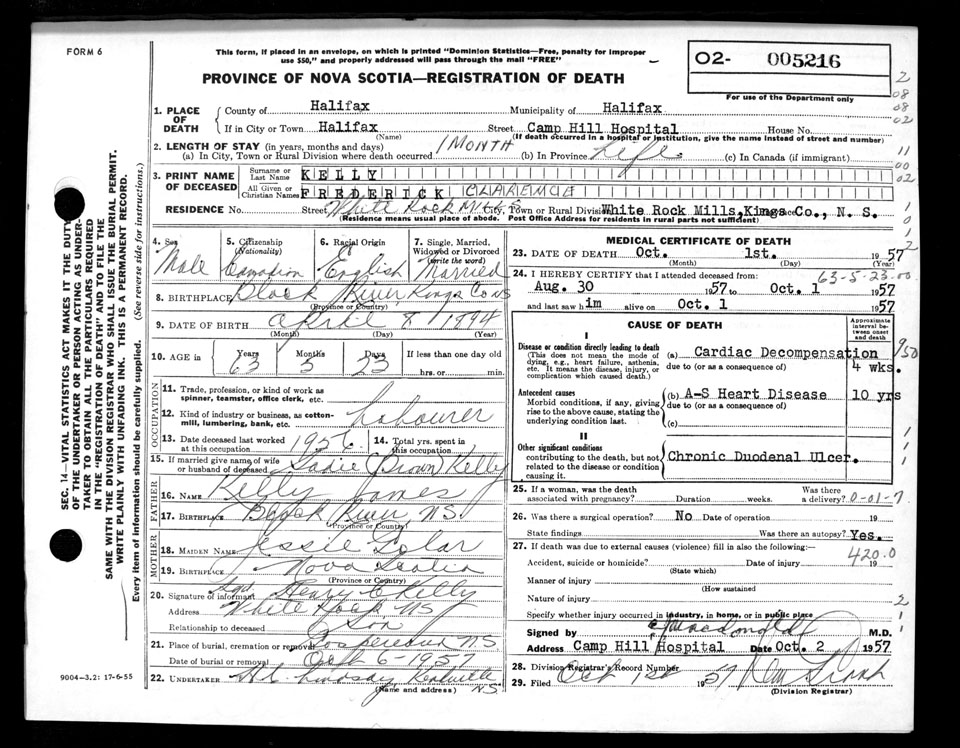 FORM 6
This form, if placed in an envelope, on which is printed "Dominion Statistics—Free, penalty for improper
use $50," and properly addressed will pass through the mail "FREE"
PROVINCE OF NOVA SCOTIA—REGISTRATION OF DEATH
02- 005216
For use of the Department only
1. PLACE OF DEATH
County of Halifax Municipality of Halifax
If in City or Town Halifax Street Camp Hill Hospital House No.
(Name) (If death occurred in a hospital or institution, give the name instead of street and number)
2. LENGTH OF STAY (in years, months and days)
(a) In City, Town or Rural Division where death occurred 1 MONTH (b) In Province Life (c) In Canada (if immigrant)
3. PRINT NAME OF DECEASED
Surname or Last Name KELLY
All Given or Christian Names FREDERICK CLARENCE
RESIDENCE No. Street White Rock MILLS City, Town or Rural Division White Rock Mills, Kings Co., N. S.
(Residence means usual place of abode. Post Office Address for residents in rural parts not sufficient)
4. Sex Male
5. Citizenship (Nationality) Canadian
6. Racial Origin English
7. Single, Married, Widowed or Divorced (write the word) Married
8. BIRTHPLACE Black River Kings Co NS
(Province or Country)
9. DATE OF BIRTH April 8 1894
(Month) (Day) (Year)
10. AGE in Years 63 Months 5 Days 23 If less than one day old
hrs. or min.
OCCUPATION
11. Trade, profession, or kind of work as spinner, teamster, office clerk, etc.
12. Kind of industry or business, as cotton-mill, lumbering, bank, etc. Labourer
13. Date deceased last worked at this occupation 1956 14. Total yrs. spent in this occupation
15. If married give name of wife or husband of deceased Sadie (Brown) Kelly
FATHER
16. NAME Kelly James
17. BIRTHPLACE Black River N.S.
(Province or Country)
MOTHER
18. MAIDEN NAME Jessie
19. BIRTHPLACE Nova Scotia
(Province or Country)
20. Signature of informant Sgd Henry C Kelly
Address White Rock NS
Relationship to deceased Son
21. Place of burial, cremation or removal N.S.
Date of burial or removal Oct 6 - 1957
22. UNDERTAKER H.C. Lindsay Kentville N.S.
(Name and address)
MEDICAL CERTIFICATE OF DEATH
23. DATE OF DEATH Oct. 1st. 1957
(Month) (Day) (Year)
63-5-23-00
24. I HEREBY CERTIFY that I attended deceased from:
Aug. 30 1957 to Oct. 1 1957
and last saw him alive on Oct. 1 1957
CAUSE OF DEATH
Approximate interval between onset and death
I
Disease or condition directly leading to death
(This does not mean the mode of dying, e.g., heart failure, asthenia, etc. It means the disease, injury, or complication which caused death.)
(a) Cardiac Decompensation 4 wks.
due to (or as a consequence of)
Antecedent causes
Morbid conditions, if any, giving rise to the above cause, stating the underlying condition last.
(b) A-S Heart Disease 10 yrs
due to (or as a consequence of)
(c)
II
Other significant conditions
contributing to the death, but not related to the disease or condition causing it.
Chronic Duodenal Ulcer.
25. If a woman, was the death associated with pregnancy? Duration weeks. Was there a delivery?
26. Was there a surgical operation? No Date of operation 19
State findings Was there an autopsy? Yes.
27. If death was due to external causes (violence) fill in also the following:— 420.0
Accident, suicide or homicide? Date of injury 19
(State which)
Manner of injury
(How sustained
Nature of injury
Specify whether injury occurred in industry, in home, or in public place
Signed by Macdonald M.D.
Address Camp Hill Hospital Date Oct. 2 1957
28. Division Registrar's Record Number
29. Filed Oct 1957
(Division Registrar)
SEC. 14—VITAL STATISTICS ACT MAKES IT THE DUTY
OF THE UNDERTAKER OR PERSON ACTING AS UNDER-
TAKER TO OBTAIN ALL THE PARTICULARS REQUIRED
IN THE "REGISTRATION OF DEATH" AND TO FILE THE
SAME WITH THE DIVISION REGISTRAR WHO SHALL ISSUE THE BURIAL PERMIT.
WRITE PLAINLY WITH UNFADING INK. THIS IS A PERMANENT RECORD.
Every item of information should be carefully supplied. (See reverse side for instructions.)
9004-3.2: 17-6-55